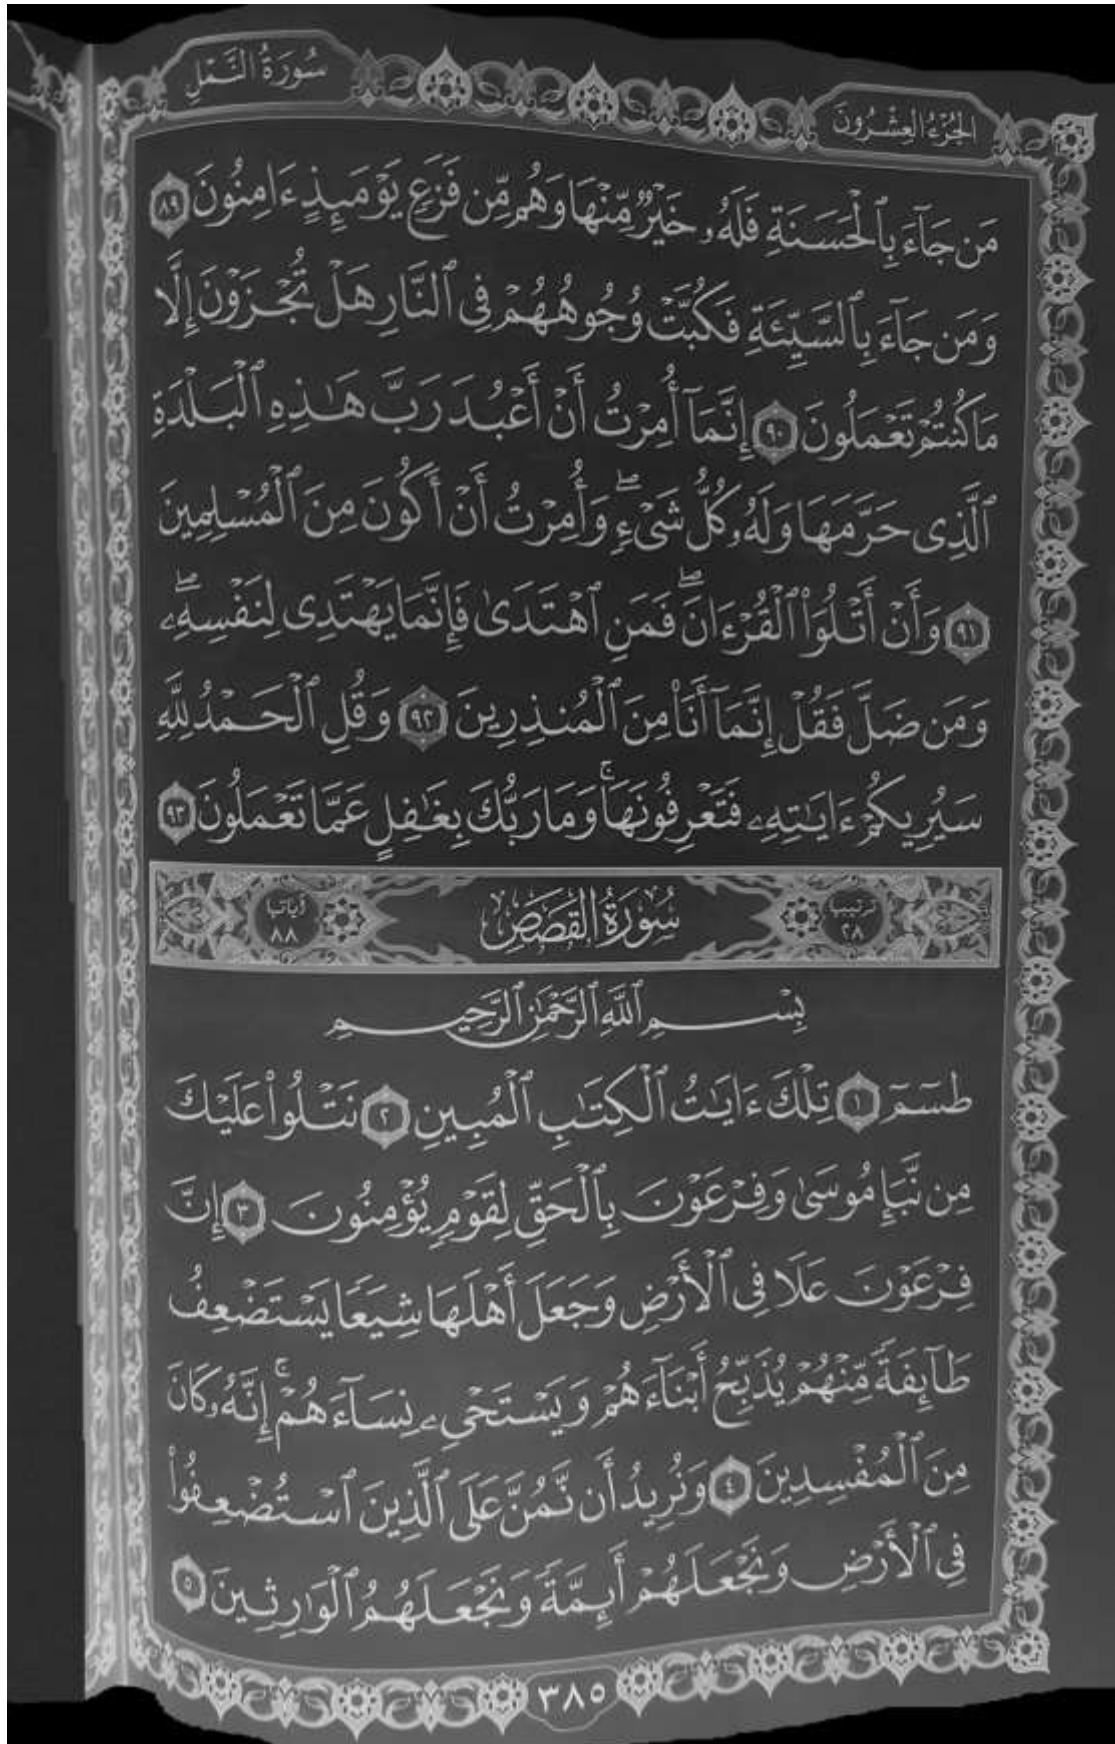 الجُزْءُ العِشْرُونَ
سُورَةُ النَّمْلِ
مَن جَآءَ بِٱلْحَسَنَةِ فَلَهُۥ خَيْرٌ مِّنْهَا وَهُم مِّن فَزَعٍ يَوْمَئِذٍ ءَامِنُونَ ٨٩
وَمَن جَآءَ بِٱلسَّيِّئَةِ فَكُبَّتْ وُجُوهُهُمْ فِى ٱلنَّارِ هَلْ تُجْزَوْنَ إِلَّا
مَا كُنتُمْ تَعْمَلُونَ ٩٠ إِنَّمَآ أُمِرْتُ أَنْ أَعْبُدَ رَبَّ هَـٰذِهِ ٱلْبَلْدَةِ
ٱلَّذِى حَرَّمَهَا وَلَهُۥ كُلُّ شَىْءٍۖ وَأُمِرْتُ أَنْ أَكُونَ مِنَ ٱلْمُسْلِمِينَ
٩١ وَأَنْ أَتْلُوَا۟ ٱلْقُرْءَانَۖ فَمَنِ ٱهْتَدَىٰ فَإِنَّمَا يَهْتَدِى لِنَفْسِهِۦۖ
وَمَن ضَلَّ فَقُلْ إِنَّمَآ أَنَا۠ مِنَ ٱلْمُنذِرِينَ ٩٢ وَقُلِ ٱلْحَمْدُ لِلَّهِ
سَيُرِيكُمْ ءَايَـٰتِهِۦ فَتَعْرِفُونَهَاۚ وَمَا رَبُّكَ بِغَـٰفِلٍ عَمَّا تَعْمَلُونَ ٩٣
ترتيبها ٢٨ سُورَةُ القَصَصِ آياتها ٨٨
بِسْمِ ٱللَّهِ ٱلرَّحْمَـٰنِ ٱلرَّحِيمِ
طسٓمٓ ١ تِلْكَ ءَايَـٰتُ ٱلْكِتَـٰبِ ٱلْمُبِينِ ٢ نَتْلُوا۟ عَلَيْكَ
مِن نَّبَإِ مُوسَىٰ وَفِرْعَوْنَ بِٱلْحَقِّ لِقَوْمٍ يُؤْمِنُونَ ٣ إِنَّ
فِرْعَوْنَ عَلَا فِى ٱلْأَرْضِ وَجَعَلَ أَهْلَهَا شِيَعًا يَسْتَضْعِفُ
طَآئِفَةً مِّنْهُمْ يُذَبِّحُ أَبْنَآءَهُمْ وَيَسْتَحْىِۦ نِسَآءَهُمْۚ إِنَّهُۥ كَانَ
مِنَ ٱلْمُفْسِدِينَ ٤ وَنُرِيدُ أَن نَّمُنَّ عَلَى ٱلَّذِينَ ٱسْتُضْعِفُوا۟
فِى ٱلْأَرْضِ وَنَجْعَلَهُمْ أَئِمَّةً وَنَجْعَلَهُمُ ٱلْوَٰرِثِينَ ٥
٣٨٥